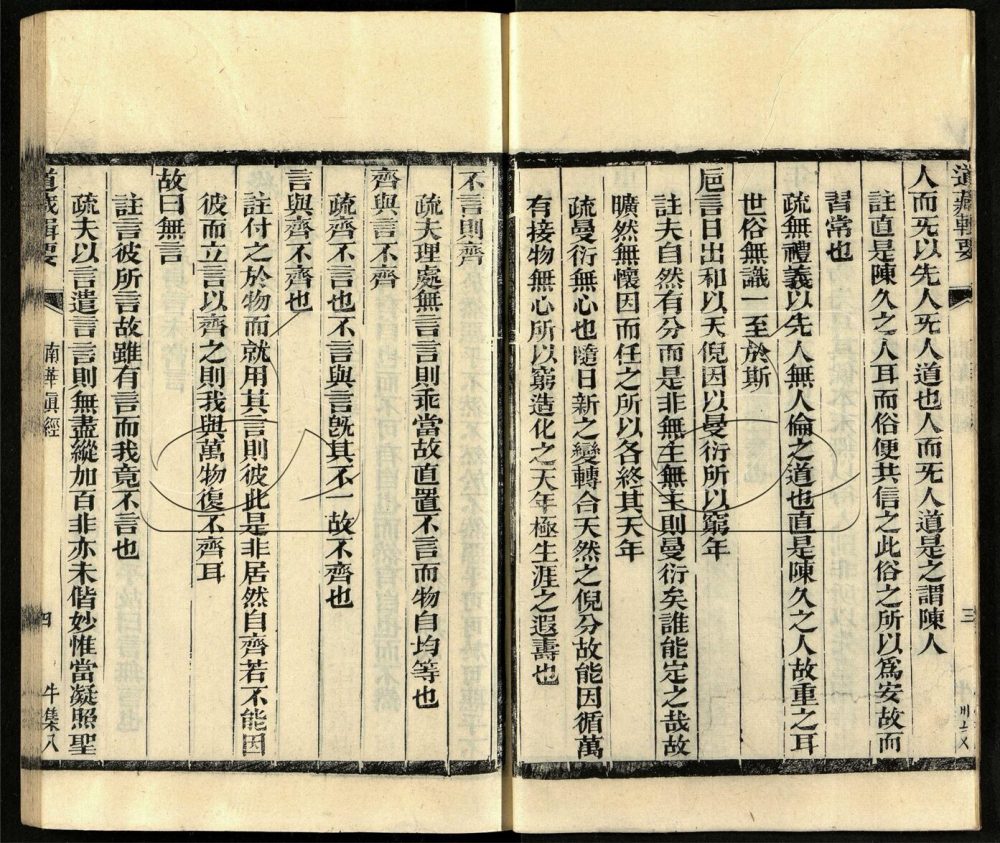 道藏輯要
三
人而旡以先人旡人道也人而旡人道是之謂陳人
註直是陳久之人耳而俗便共信之此俗之所以爲安故而
習常也
疏無禮義以先人無人倫之道也直是陳久之人故重之耳
世俗無識一至於斯
巵言日出和以天倪因以曼衍所以窮年
註夫自然有分而是非無主無主則曼衍矣誰能定之哉故
曠然無懷因而任之所以各終其天年
疏曼衍無心也隨日新之變轉合天然之倪分故能因循萬
有接物無心所以窮造化之天年極生涯之遐壽也
不言則齊
疏夫理處無言言則乖當故直置不言而物自均等也
齊與言不齊
疏齊不言也不言與言旣其不一故不齊也
言與齊不齊也
註付之於物而就用其言則彼此是非居然自齊若不能因
彼而立言以齊之則我與萬物復不齊耳
故曰無言
註言彼所言故雖有言而我竟不言也
疏夫以言遣言言則無盡縱加百非亦未偕妙惟當凝照聖
道藏輯要 南華眞經 四 牛集八